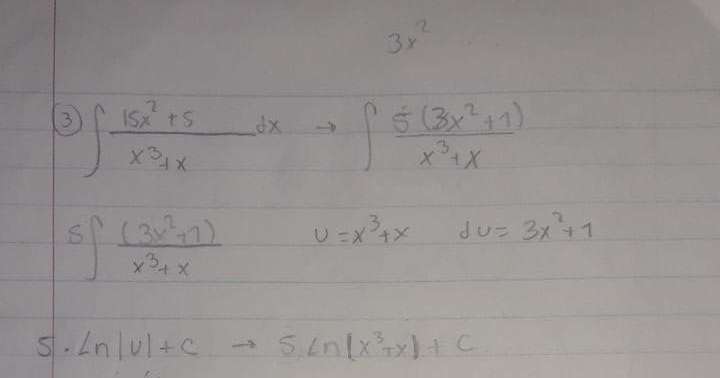 3x²
③ ∫ (15x² + 5)/(x³ + x) dx → ∫ 5(3x² + 1)/(x³ + x)
5 ∫ (3x² + 1)/(x³ + x) U = x³ + x dU = 3x² + 1
5 · Ln |U| + C → 5 · Ln |x³ + x| + C